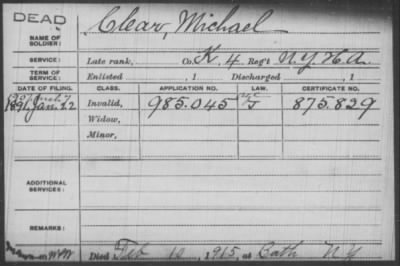 DEAD
NAME OF SOLDIER: Clear, Michael
SERVICE: Late rank, Co. K, 4 Reg't N.Y. H.A.
TERM OF SERVICE: Enlisted , 1 Discharged , 1
DATE OF FILING. CLASS. APPLICATION NO. LAW. CERTIFICATE NO.
1891 Jan. 22 Invalid, 985.045 875.829
Widow,
Minor,
ADDITIONAL SERVICES:
REMARKS:
Died Feb 10, 1915, at Bath N.Y.